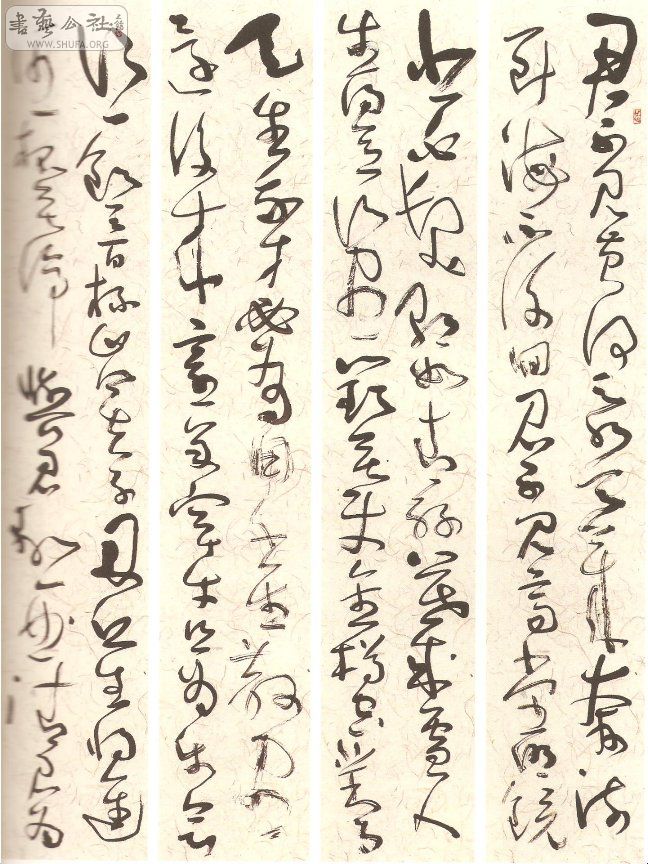 君不見黃河之水天上來奔流
到海不復回君不見高堂明鏡
悲白髮朝如青絲暮成雪人
生得意須盡歡莫使金樽空對月
天生我才必有用千金散盡
還復來烹羊宰牛且為樂會
須一飲三百杯岑夫子丹丘生將進
酒杯莫停與君歌一曲請君為
書藝公社
WWW.SHUFA.ORG